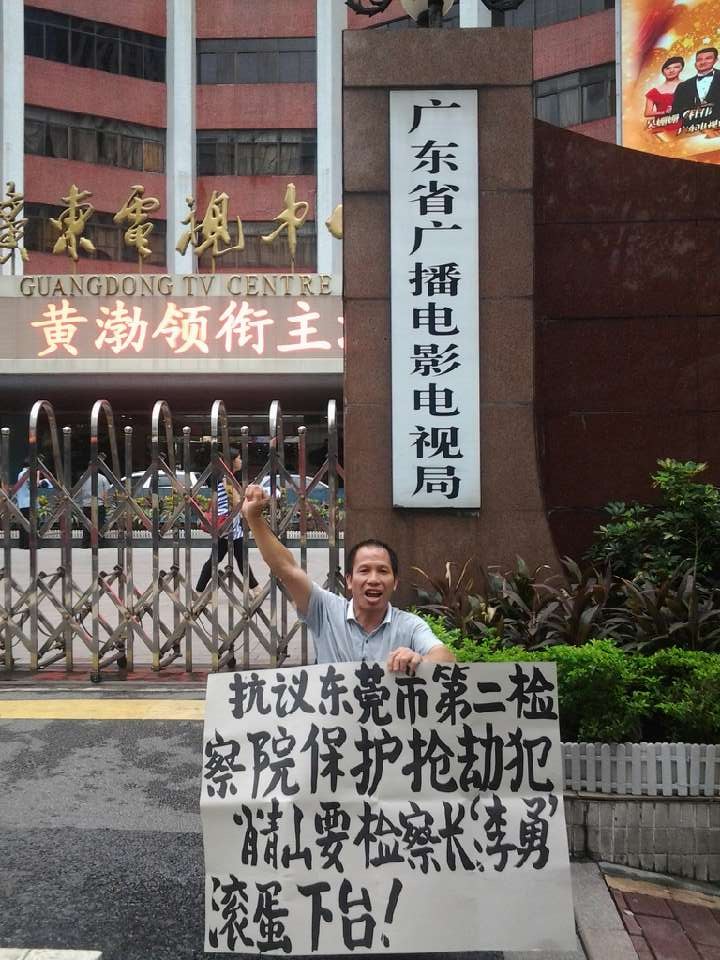 广东省广播电影电视局
廣東電視中
GUANGDONG TV CENTRE
黄渤领衔主
抗议东莞市第二检
察院保护抢劫犯
肖青山要检察长‘李勇’
滚蛋下台!